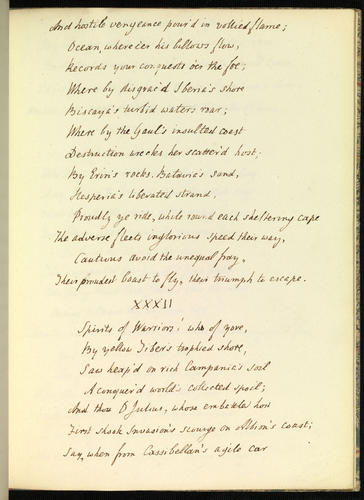 And hostile vengeance pour'd in vollied flame;
Ocean, where'er his billows flow,
Records your conquests o'er the foe;
Where by disgrac'd Iberia's shore
Biscaya's turbid waters roar;
Where by the Gaul's insulted coast
Destruction wrecks her scatter'd host;
By Erin's rocks. Batavia's sand,
Hesperia's liberated strand,
Proudly ye ride, while round each sheltering cape
The adverse fleets inglorious speed their way,
Cautious avoid the unequal fray,
Their proudest boast to fly, their triumph to escape.
XXXII
Spirits of Warriors! who of yore,
By yellow Tiber's trophied shore,
Saw heap'd on rich Campania's soil
A conquer'd world's collected spoil;
And thou O Julius, whose embattled host
First shook Invasion's scourge on Albion's coast;
Say, when from Cassibellan's agile car